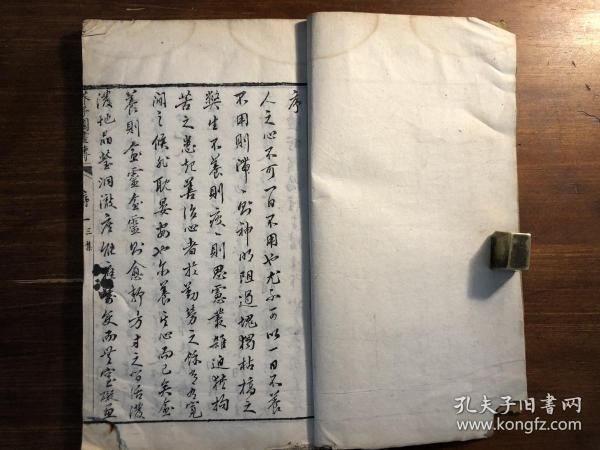 序
人之心不可一日不用也尤不可以一日不養
不用則滯滯則神明阻遏塊獨枯槁之
弊生不養則疲疲則思慮叢雜迫猝拘
苦之患起善治心者於勤勞之餘為寬
閒之候非耽晏安也亦養其心而已矣
養則靈靈則愈靜方寸之間活潑
潑地晶瑩洞澈
序
一
三集
孔夫子旧书网
www.kongfz.com